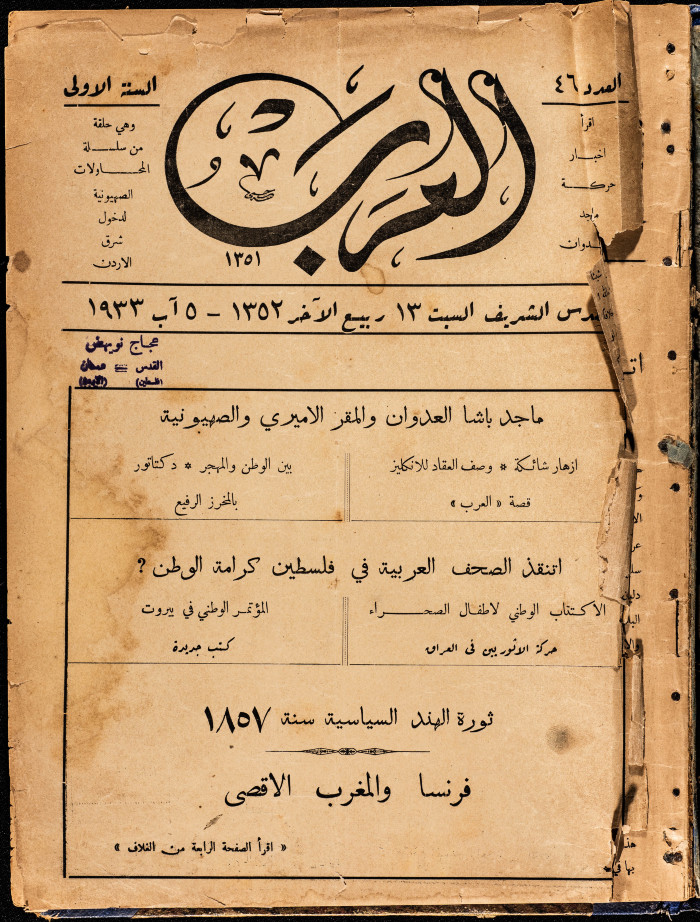 العدد ٤٦
اقرأ
اخبـار
حركـــة
ماجد
العرب
١٣٥١
السنة الاولى
وهي حلقة
من سلــــلة
المحـــاولات
الصهيونية
لدخول
شرق
الاردن
الشريف السبت ١٣ ربيع الآخر ١٣٥٢ – ٥ آب ١٩٣٣
عجاج نويهض
القدس عمان
(فلسطين)
ماجد باشا العدوان والمقر الاميري والصهيونية
ازهار شائكة * وصف العقاد للانكليز
قصة « العرب »
بين الوطن والمهجر * دكتاتور
بالمخرز الرفيع
اتنقذ الصحف العربية في فلسطين كرامة الوطن ؟
الاكتتاب الوطني لاطفال الصحـــراء
حركة الاثوريين في العراق
المؤتمر الوطني في بيروت
كتب جديدة
ثورة الهند السياسية سنة ١٨٥٧
فرنسا والمغرب الاقصى
« اقرأ الصفحة الرابعة من الغلاف »